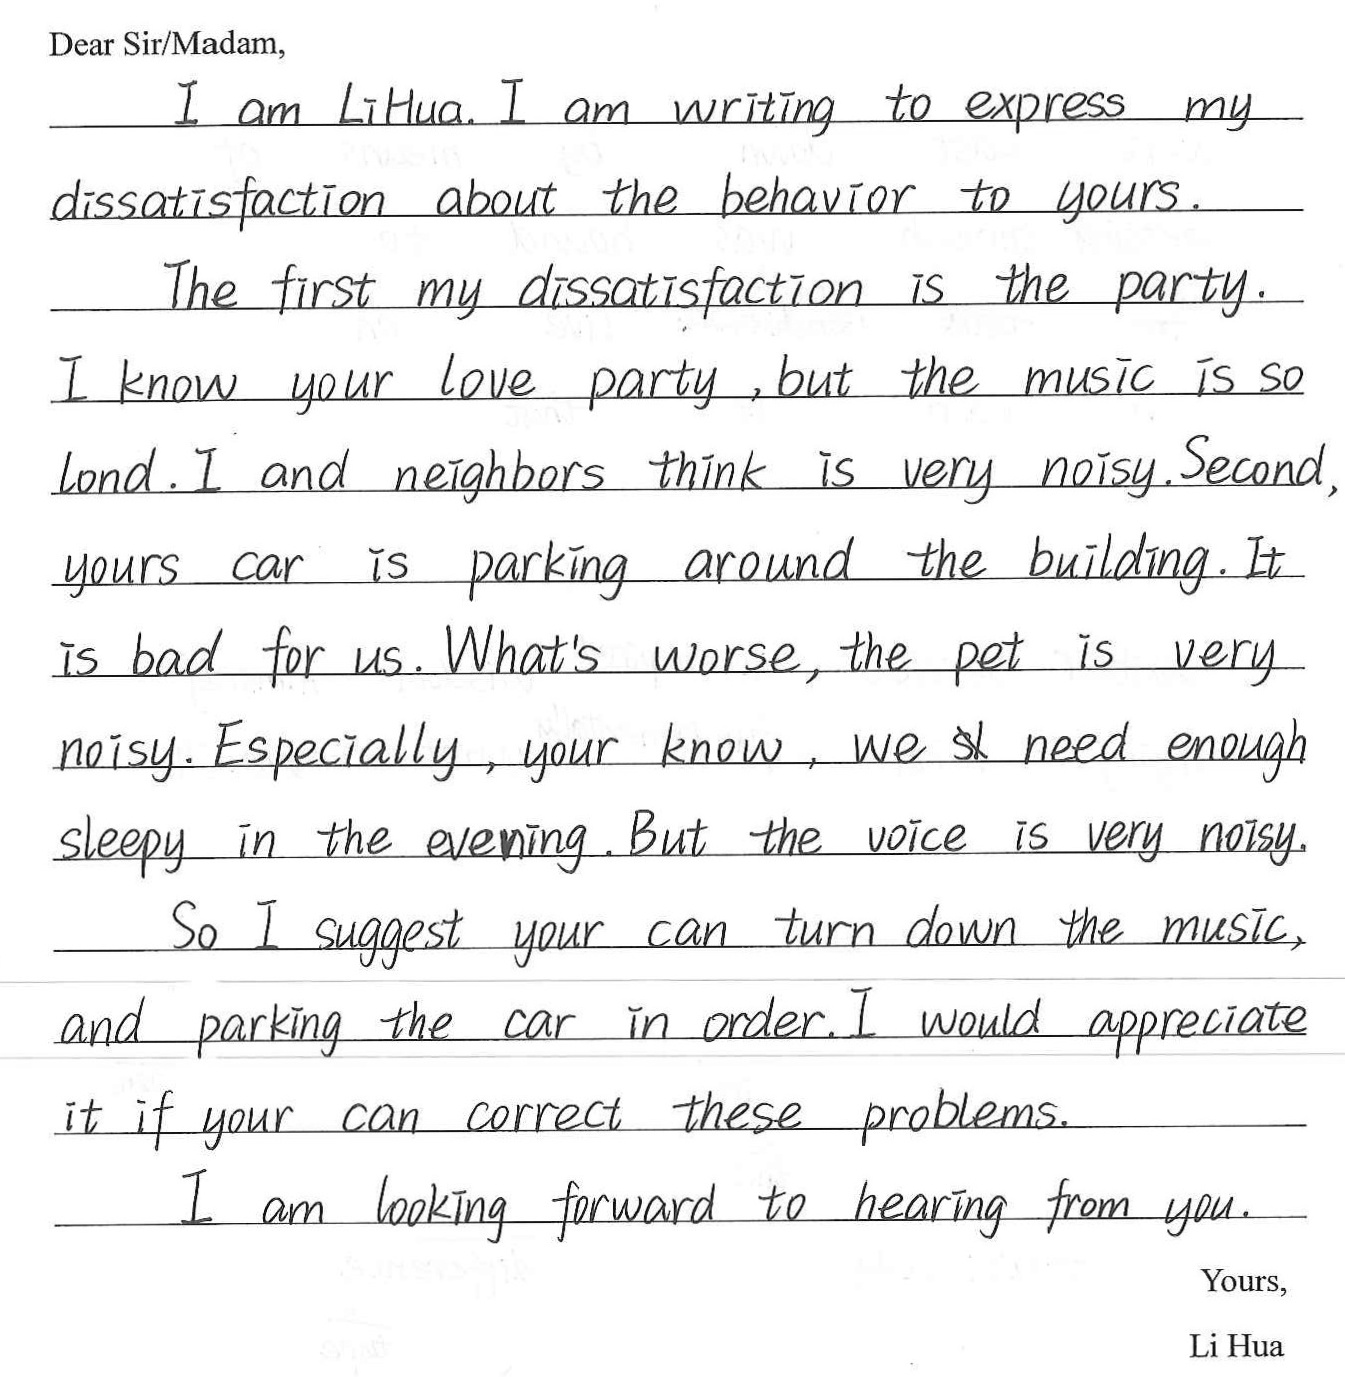 Dear Sir/Madam,
I am LiHua. I am writing to express my
dissatisfaction about the behavior to yours.
The first my dissatisfaction is the party.
I know your love party, but the music is so
lond. I and neighbors think is very noisy. Second,
yours car is parking around the building. It
is bad for us. What's worse, the pet is very
noisy. Especially, your know, we need enough
sleepy in the evening. But the voice is very noisy.
So I suggest your can turn down the music,
and parking the car in order. I would appreciate
it if your can correct these problems.
I am looking forward to hearing from you.
Yours,
Li Hua